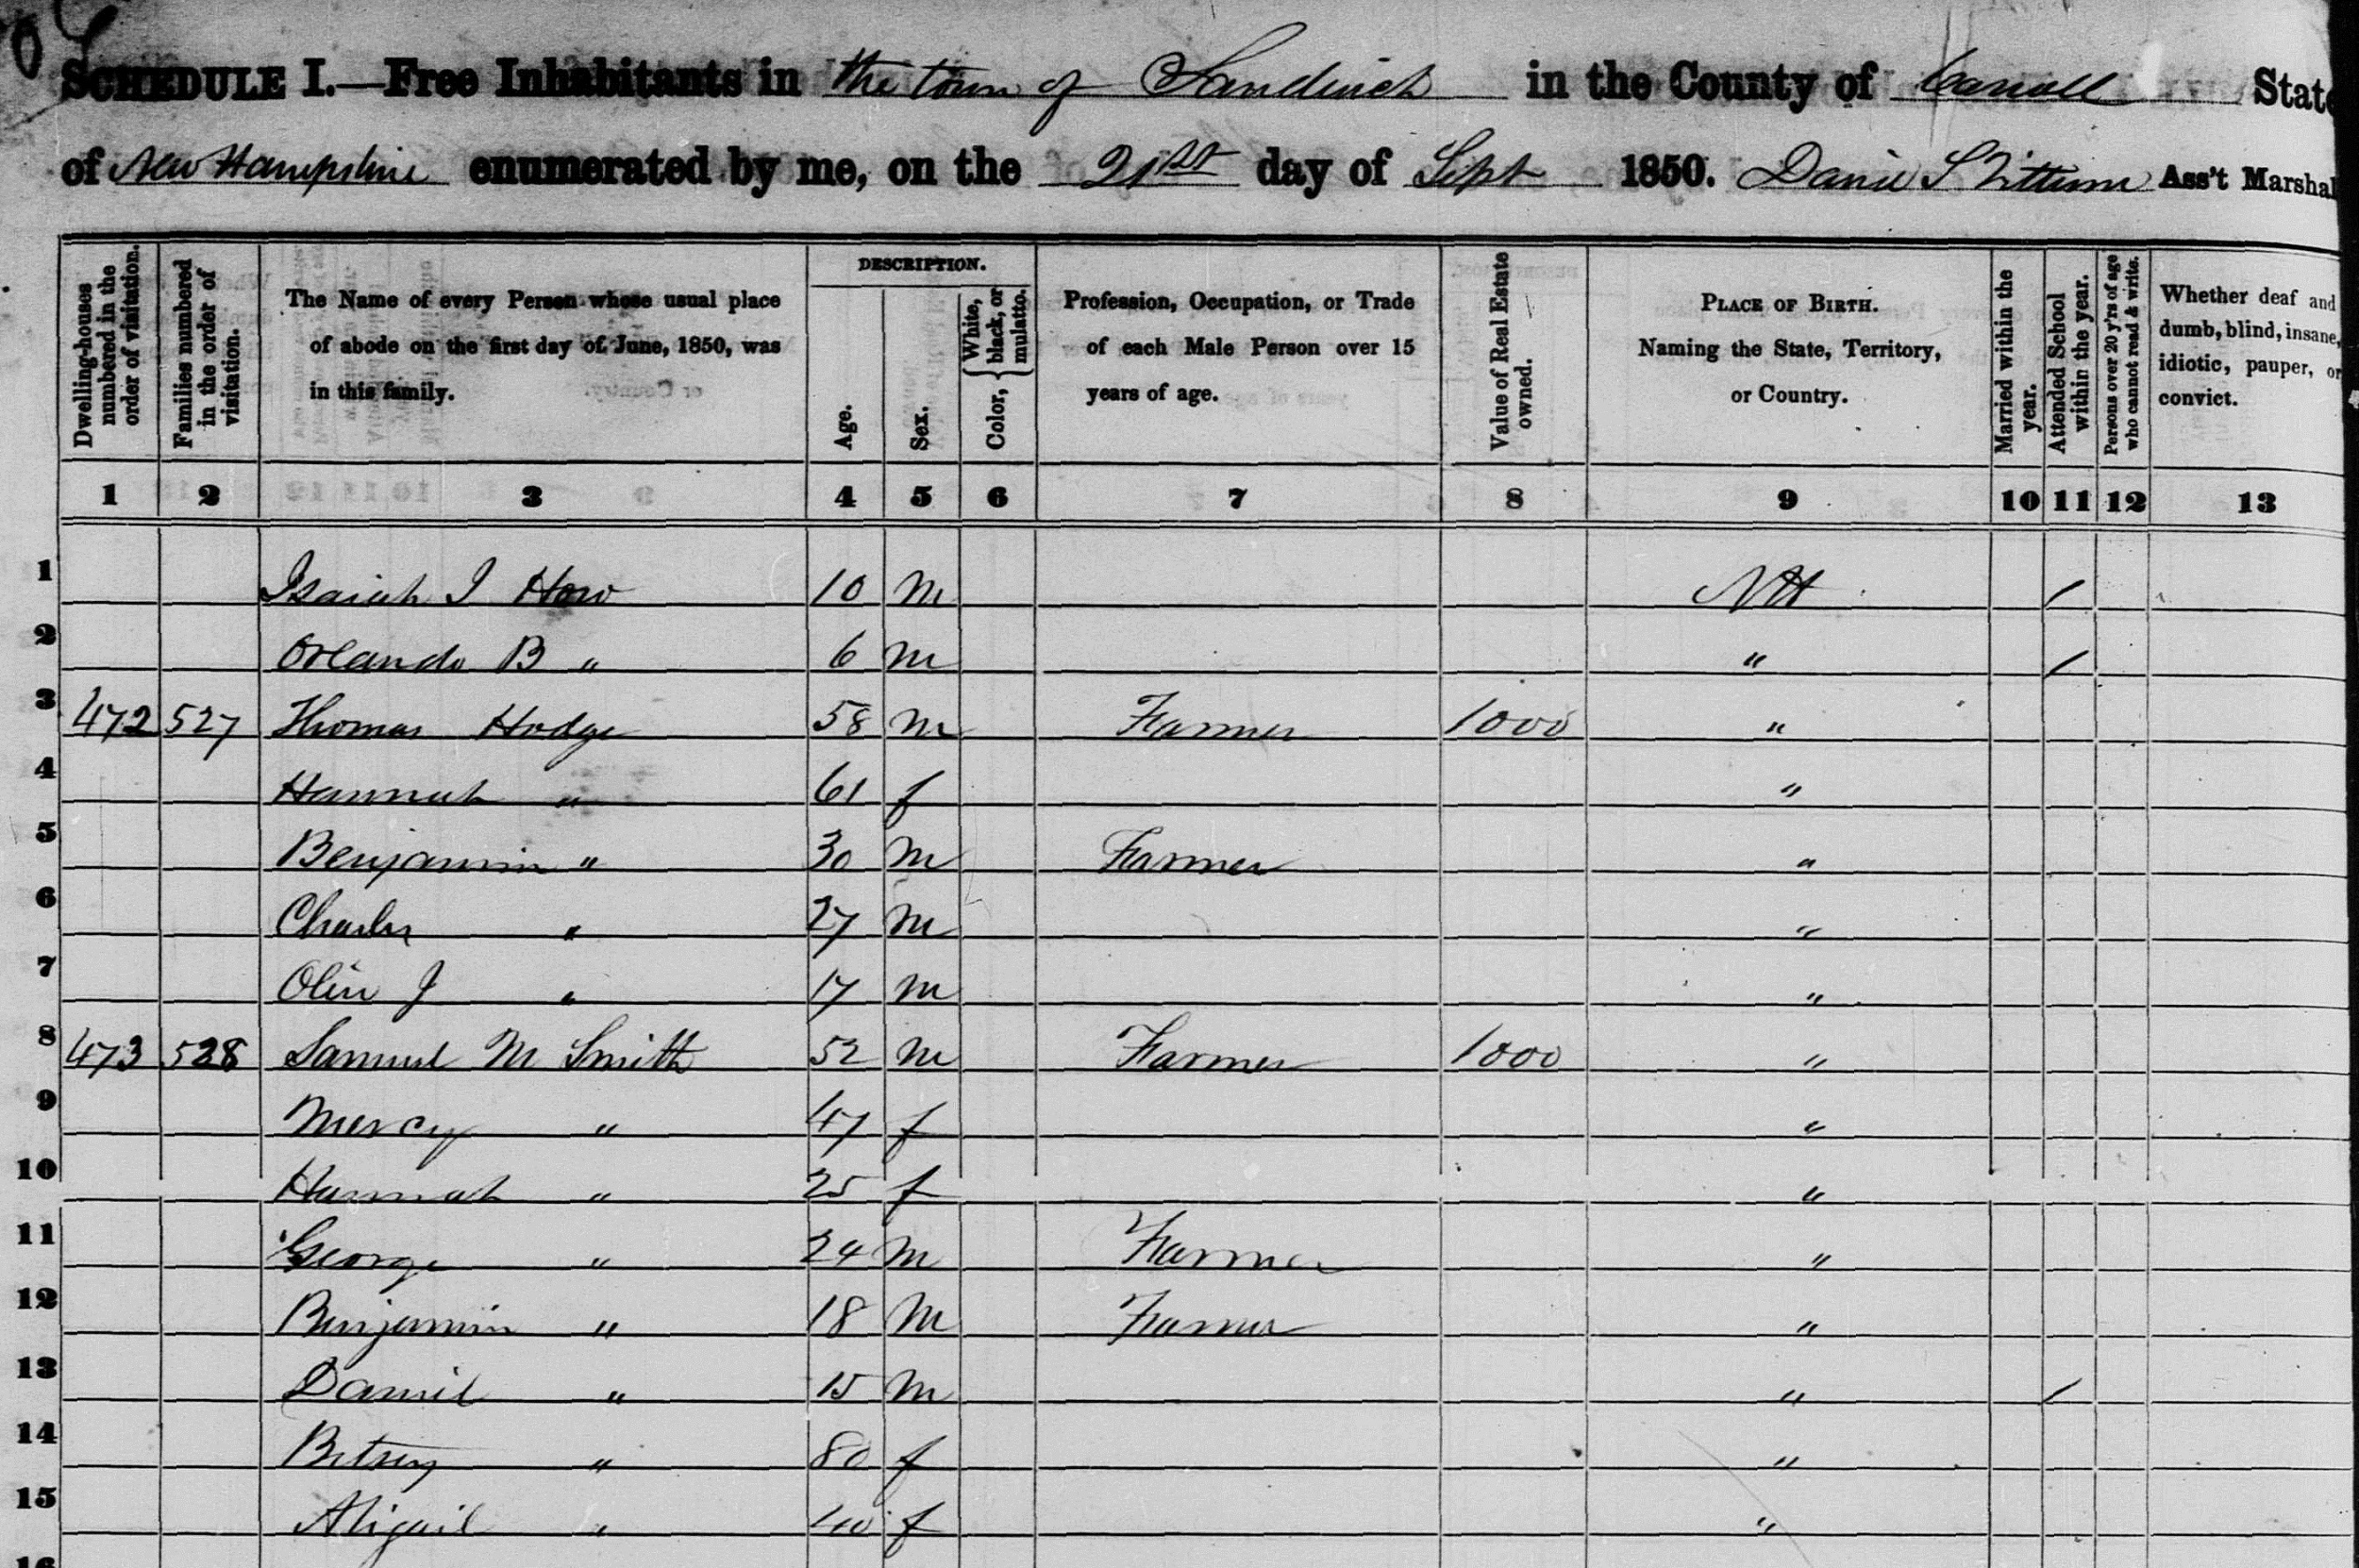 SCHEDULE I.—Free Inhabitants in the town of Sandwich in the County of Carroll State
of New Hampshire enumerated by me, on the 21st day of Sept 1850. Ass't Marshal
Dwelling-houses numbered in the order of visitation.
Families numbered in the order of visitation.
The Name of every Person whose usual place of abode on the first day of June, 1850, was in this family.
DESCRIPTION.
Age.
Sex.
Color, { White, black, or mulatto.
Profession, Occupation, or Trade of each Male Person over 15 years of age.
Value of Real Estate owned.
PLACE OF BIRTH. Naming the State, Territory, or Country.
Married within the year.
Attended School within the year.
Persons over 20 y'rs of age who cannot read & write.
Whether deaf and dumb, blind, insane, idiotic, pauper, or convict.
1 2 3 4 5 6 7 8 9 10 11 12 13
1 Isaiah I How 10 M NH /
2 Orlando B " 6 M " /
3 472 527 Thomas Hodge 58 M Farmer 1000 "
4 Hannah " 61 f "
5 Benjamin " 30 M Farmer "
6 Charles " 27 M "
7 Olin J " 17 M "
8 473 528 Samuel M Smith 52 M Farmer 1000 "
9 Mercy " 47 f "
10 Hannah " 25 f "
11 George " 24 M Farmer "
12 Benjamin " 18 M Farmer "
13 Daniel " 15 M " /
14 Betsey " 80 f "
15 Abigail " 40 f "
16